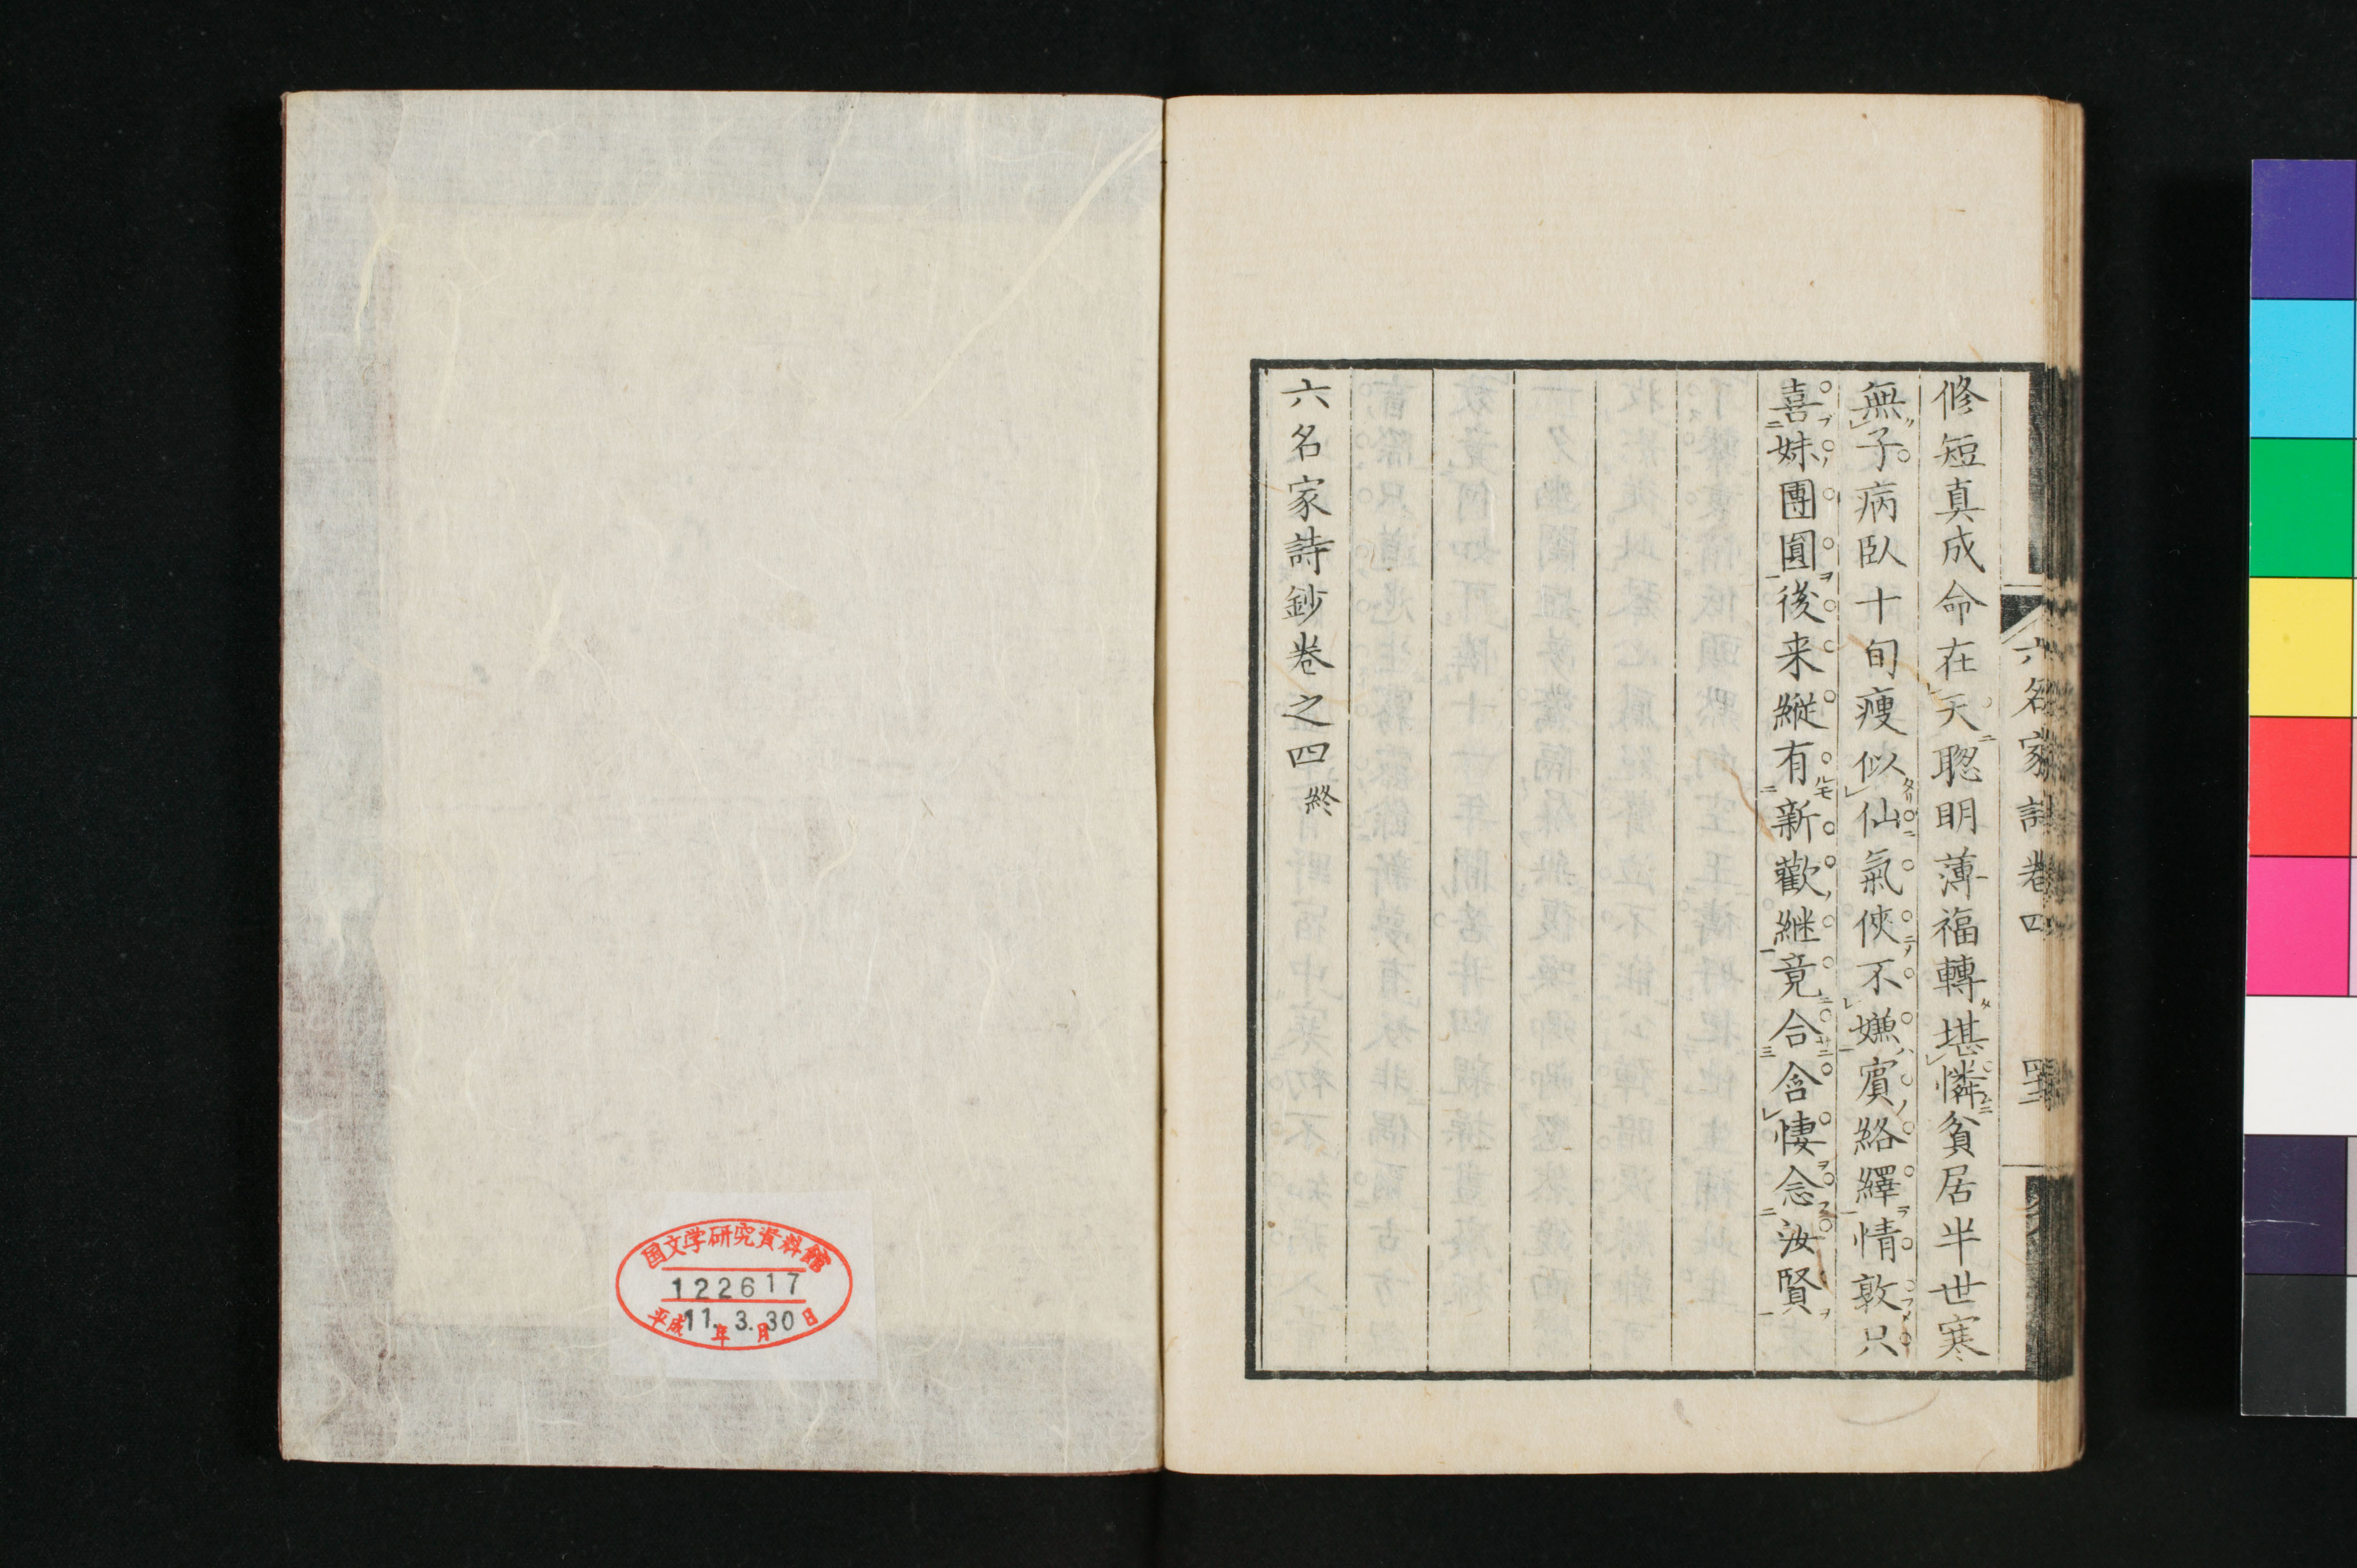 六名家詩 卷四
修短真成命在天聰明薄福轉堪憐貧居半世寒
無子病臥十旬瘦似仙氣俠不嫌賓絡繹情敦只
喜妹團圓後来縱有新歡継竟合含悽念汝賢
六名家詩鈔卷之四終
国文学研究資料館
122617
平成11年3月30日